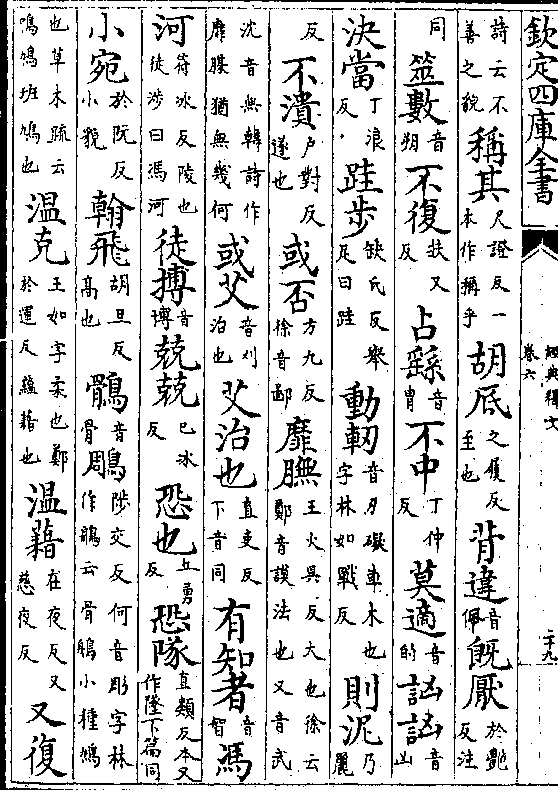 欽定四庫全書
經典釋文
卷六
二十九
詩云不善之貌稱其尺證反一本作稱乎胡厎之履反至也背違音佩旣厭於艷反注
同筮數音朔不復扶又反占繇音胄不中丁仲反莫適音的訩訩音凶
決當丁浪反跬步缺氏反舉足曰跬動軔音刃礙車木也字林如戰反則泥乃麗
反不潰戶對反遂也或否方九反徐音鄙靡膴王火吳反大也徐云鄭音謨法也又音武
沈音無韓詩作靡腜猶無幾何或艾音刈治也艾治也直吏反下音同有知者音智馮
河符冰反陵也徒涉曰馮河徒搏音博兢兢已冰反恐也丘勇反恐隊直類反本又作墜下篇同
小宛於阮反小貌翰飛胡旦反高也鶻音骨鵰陟交反何音彫字林作鶻云骨鵃小種鳩
也草木疏云鳴鳩班鳩也溫克王如字柔也鄭於運反蘊藉也溫藉在夜反又慈夜反又復